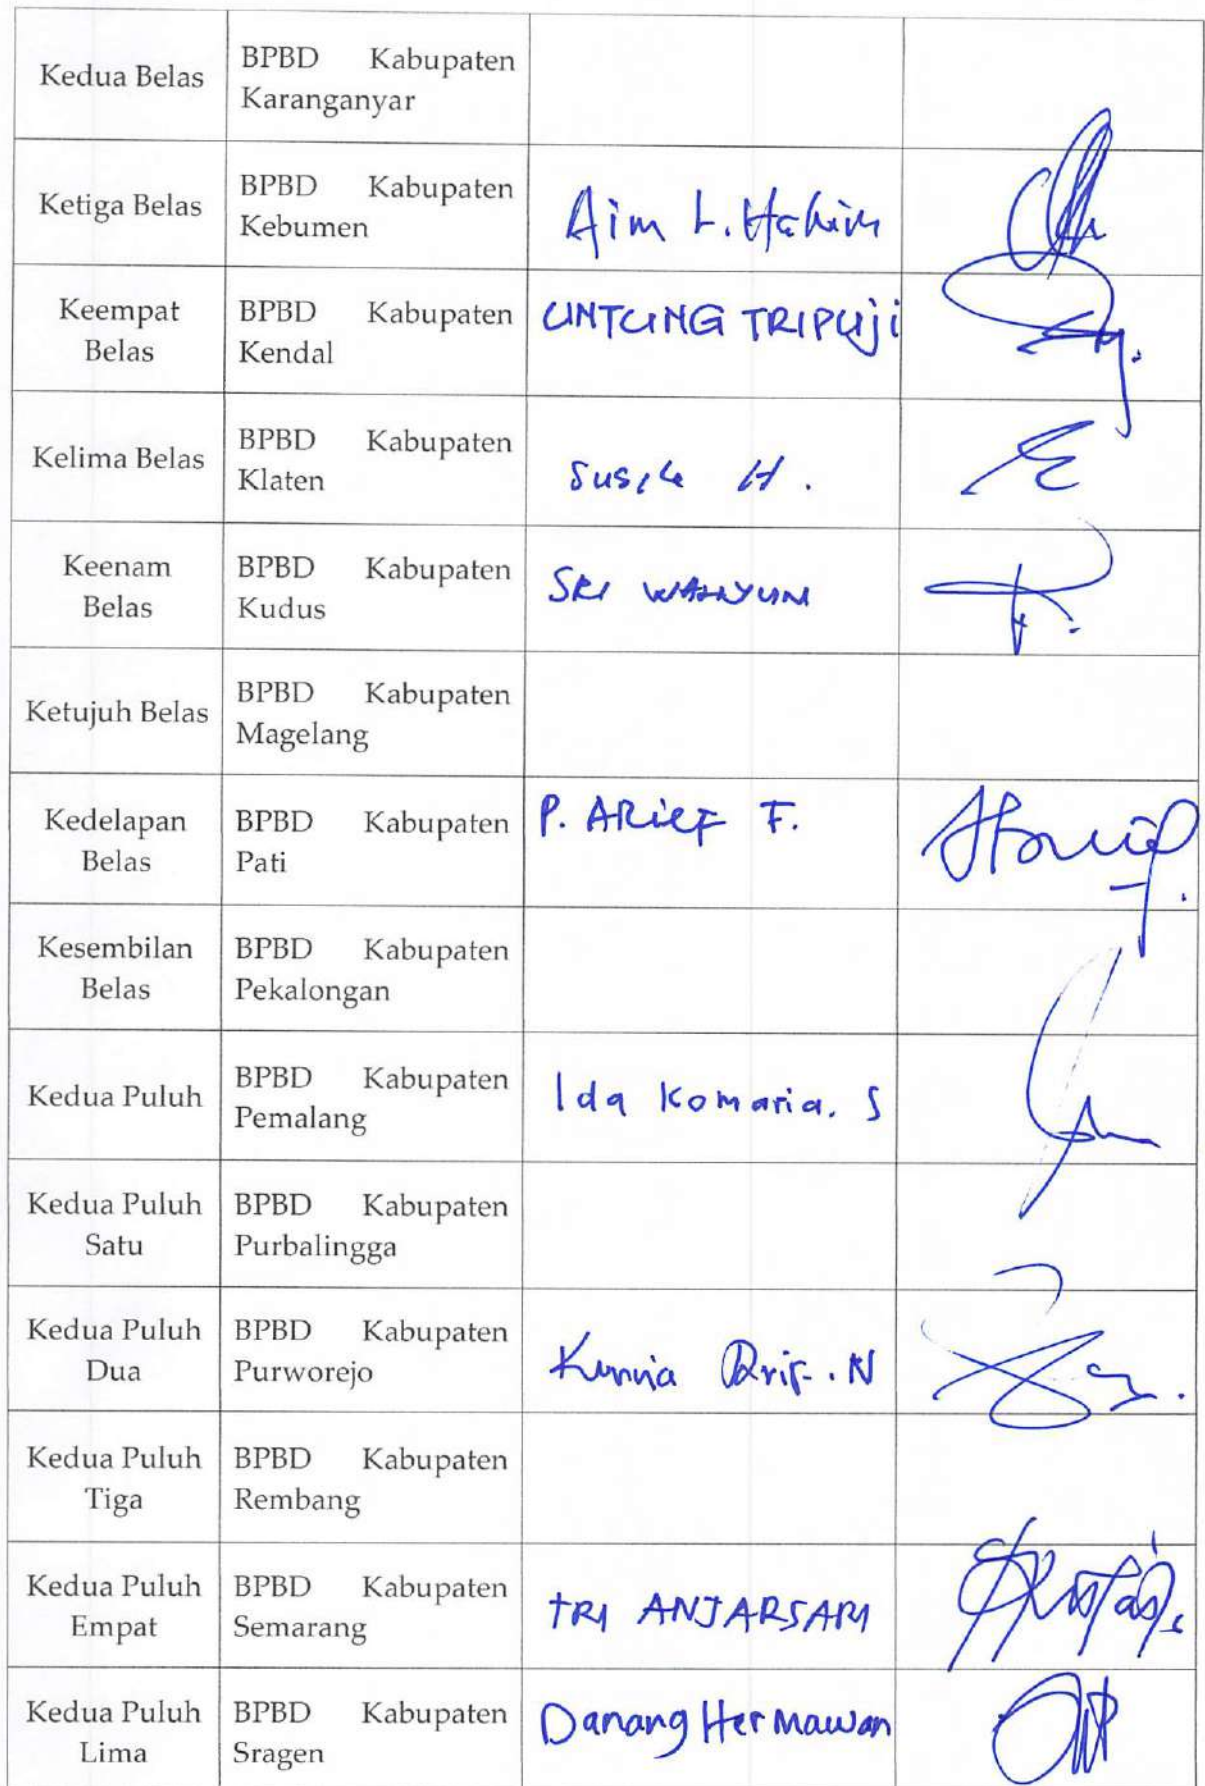 Kedua Belas
BPBD Kabupaten
Karanganyar
Ketiga Belas
BPBD Kabupaten
Kebumen
Aim L. Hakim
Keempat
Belas
BPBD Kabupaten
Kendal
UNTUNG TRIPUji
Kelima Belas
BPBD Kabupaten
Klaten
Susila H.
Keenam
Belas
BPBD Kabupaten
Kudus
SRI WAHYUNI
Ketujuh Belas
BPBD Kabupaten
Magelang
Kedelapan
Belas
BPBD Kabupaten
Pati
P. ARIEF F.
Kesembilan
Belas
BPBD Kabupaten
Pekalongan
Kedua Puluh
BPBD Kabupaten
Pemalang
Ida Komaria. S
Kedua Puluh
Satu
BPBD Kabupaten
Purbalingga
Kedua Puluh
Dua
BPBD Kabupaten
Purworejo
Kurnia . N
Kedua Puluh
Tiga
BPBD Kabupaten
Rembang
Kedua Puluh
Empat
BPBD Kabupaten
Semarang
TRI ANJARSARI
Kedua Puluh
Lima
BPBD Kabupaten
Sragen
Danang Hermawan